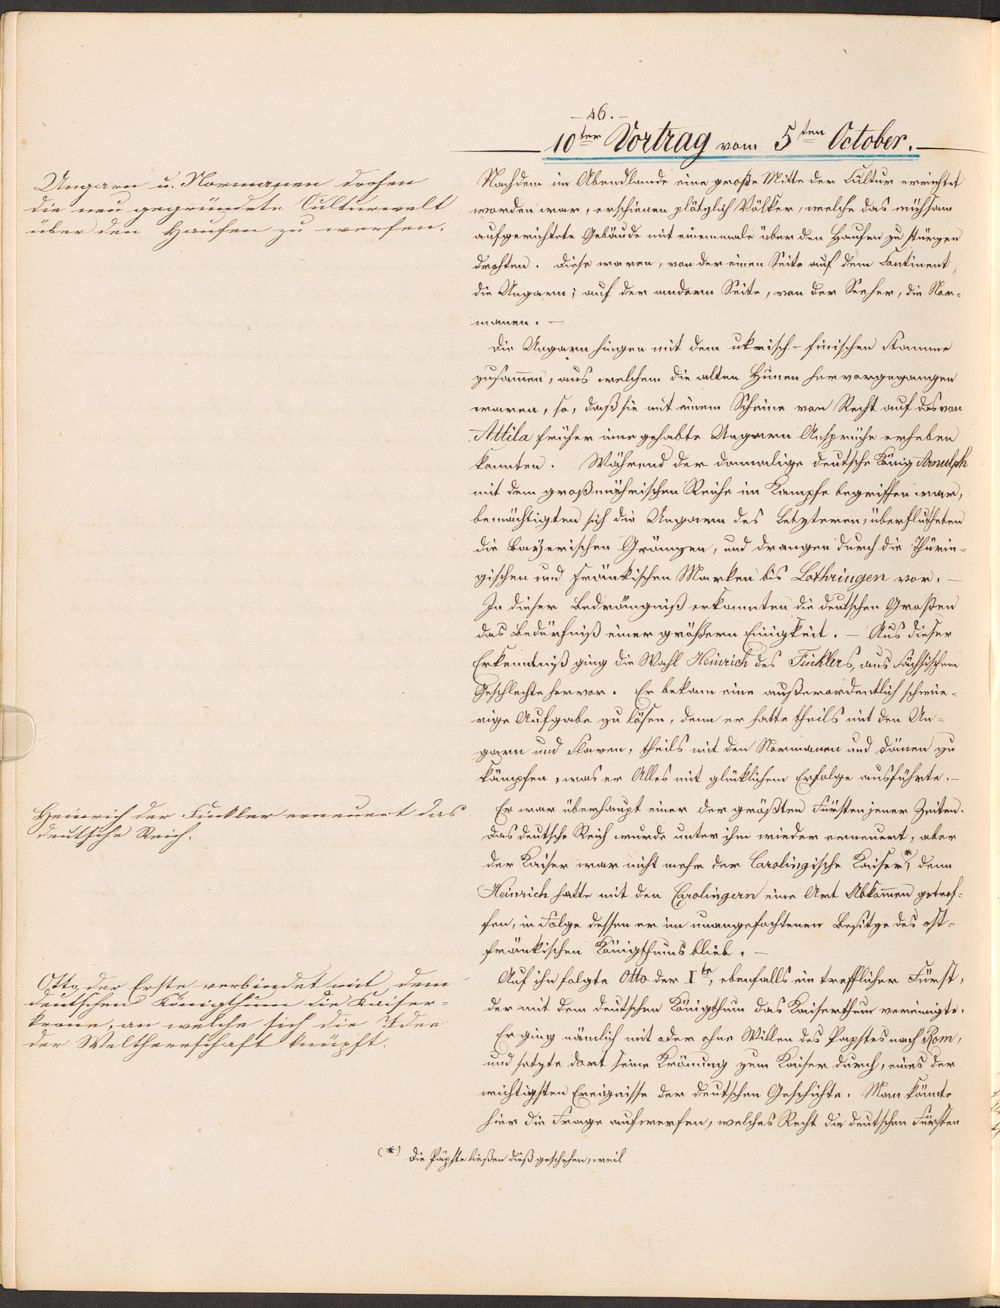 – 46. –
10ter Vortrag vom 5ten October.
Ungarn u. Normanen drohen
die neu gegründete Culturwelt
über den Haufen zu werfen.
Nachdem im Abendlande eine große Mitte der Cultur errichtet
worden war, erschienen plötzlich Völker, welche das mühsam
aufgerichtete Gebäude mit einemmale über den Haufen zu stürzen
drohten. Diese waren, von der einen Seite auf dem Continent,
die Ungarn; auf der andern Seite, von der See her, die Nor-
manen. –
Die Ungarn hingen mit dem ukrisch-finischen Stamme
zusammen, aus welchem die alten Hunen hervorgegangen
waren, so, daß sie mit einem Scheine von Recht auf das von
Attila früher inne gehabte Ungarn Ansprüche erheben
konnten. Während der damalige deutsche König Arnulph
mit dem großmährischen Reiche im Kampfe begriffen war,
bemächtigten sich die Ungarn des Letzteren, überflutheten
die bayerischen Gränzen, und drangen durch die Thürin-
gischen und Fränkischen Marken bis Lothringen vor. –
In dieser Bedrängniß erkannten die deutschen Großen
das Bedürfniß einer größern Einigkeit. – Aus dieser
Erkenntniß ging die Wahl Heinrich des Finklers, aus sächsischem
Geschlechte hervor. Er bekam eine außerordentlich schwie-
rige Aufgabe zu lösen, denn er hatte theils mit den Un-
garn und Slaven, theils mit den Normanen und Dänen zu
kämpfen, was er Alles mit glücklichem Erfolge ausführte. –
Heinrich der Finkler erneuert das
deutsche Reich.
Er war überhaupt einer der größten Fürsten jener Zeiten.
Das deutsche Reich wurde unter ihm wieder erneuert, aber
der Kaiser war nicht mehr der Carolingische Kaiser*, denn
Heinrich hatte mit den Carolingern eine Art Abkommen getrof-
fen, in Folge dessen er im unangefochtenen Besitze des ost-
fränkischen Königthums blieb. –
Otto der Erste verbindet mit dem
deutschen Königthum die Kaiser-
krone, an welche sich die Idee
der Weltherrschaft knüpft.
Auf ihn folgte Otto der Ite, ebenfalls ein trefflicher Fürst,
der mit dem deutschen Königthum das Kaiserthum vereinigte.
Er ging nämlich mit oder ohne Willen des Papstes nach Rom,
und setzte dort seine Krönung zum Kaiser durch, eines der
wichtigsten Ereignisse der deutschen Geschichte. Man könnte
hier die Frage aufwerfen, welches Recht die deutschen Fürsten
(*) Die Päpste ließen dieß geschehen, weil